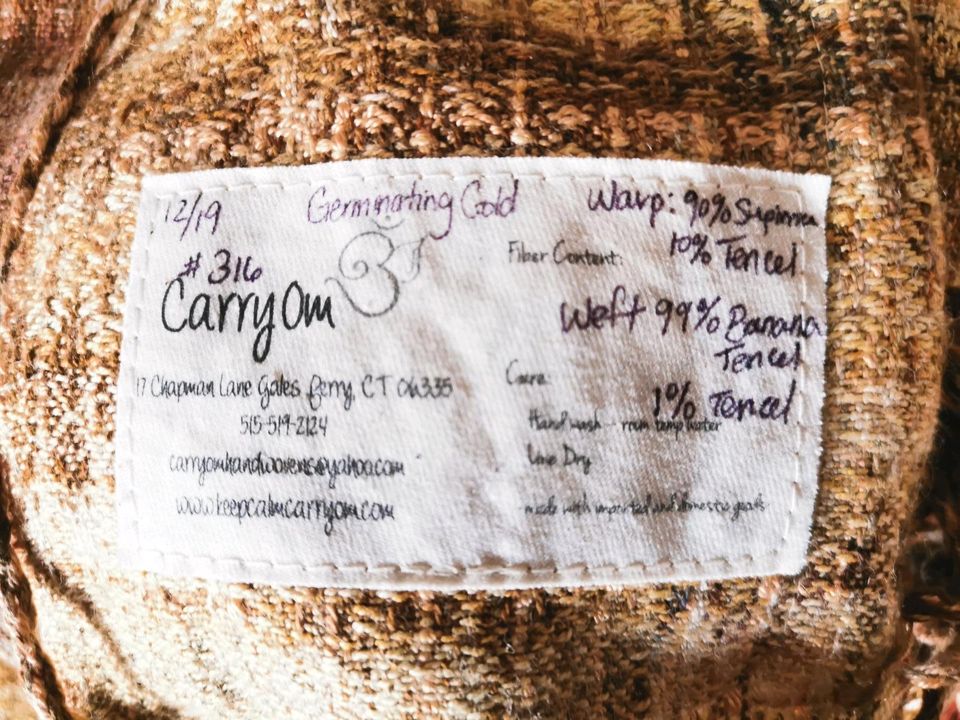 12/19
Germinating Gold
#316
Carry Om
17 Chapman Lane Gales Ferry, CT 06335
515-519-2124
carryomhandwovens@yahoo.com
www.keepcalmcarryom.com
Warp: 90% Supima
10% Tencel
Fiber Content:
Weft 99% Banana
Tencel
1% Tencel
Care:
Hand wash - room temp water
Line Dry
made with imported and domestic goods